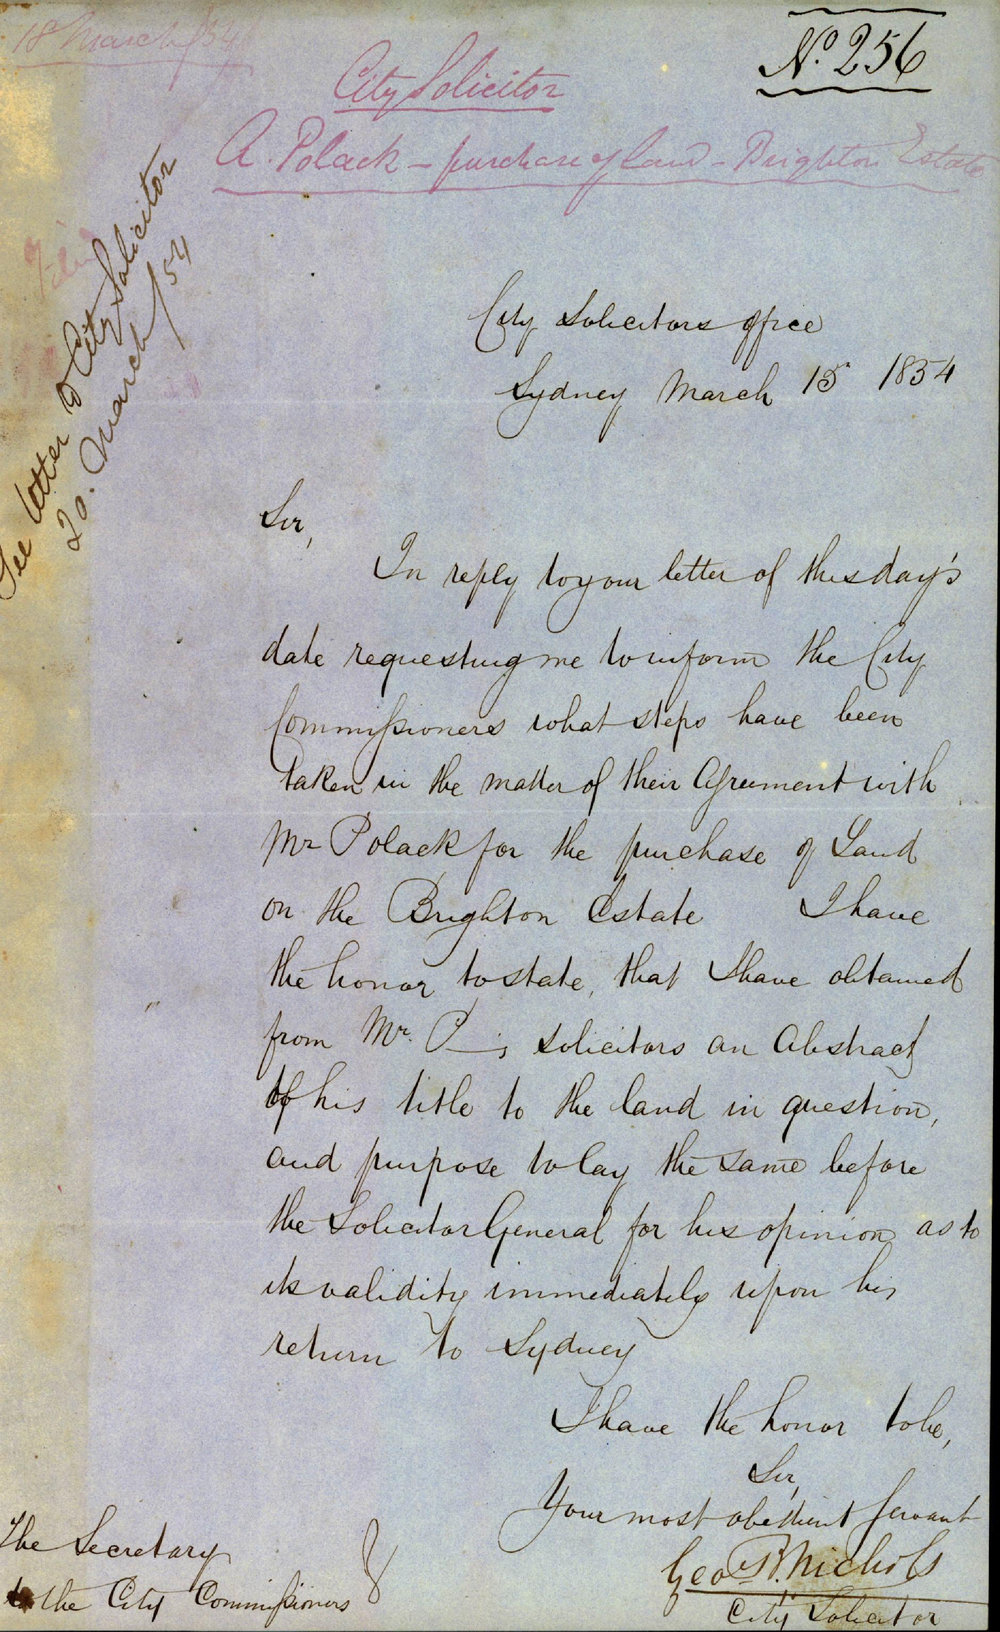 18 March /54
No. 256
City Solicitor
A. Polack - purchase of land - Brighton Estate
See letter to City Solicitor
20. March /54
City Solicitors Office
Sydney March 15 1854
Sir,
In reply to your letter of this day's
date requesting me to inform the City
Commissioners what steps have been
taken in the matter of their Agreement with
Mr Polack for the purchase of Land
on the Brighton Estate I have
the honor to state, that I have obtained
from Mr. P—s solicitors an Abstract
of his title to the land in question,
and purpose to lay the same before
the Solicitor General for his opinion as to
its validity immediately upon his
return to Sydney
I have the honor to be,
Sir,
Your most obedient Servant
Geo R. Nichols
City Solicitor
The Secretary
to the City Commissioners